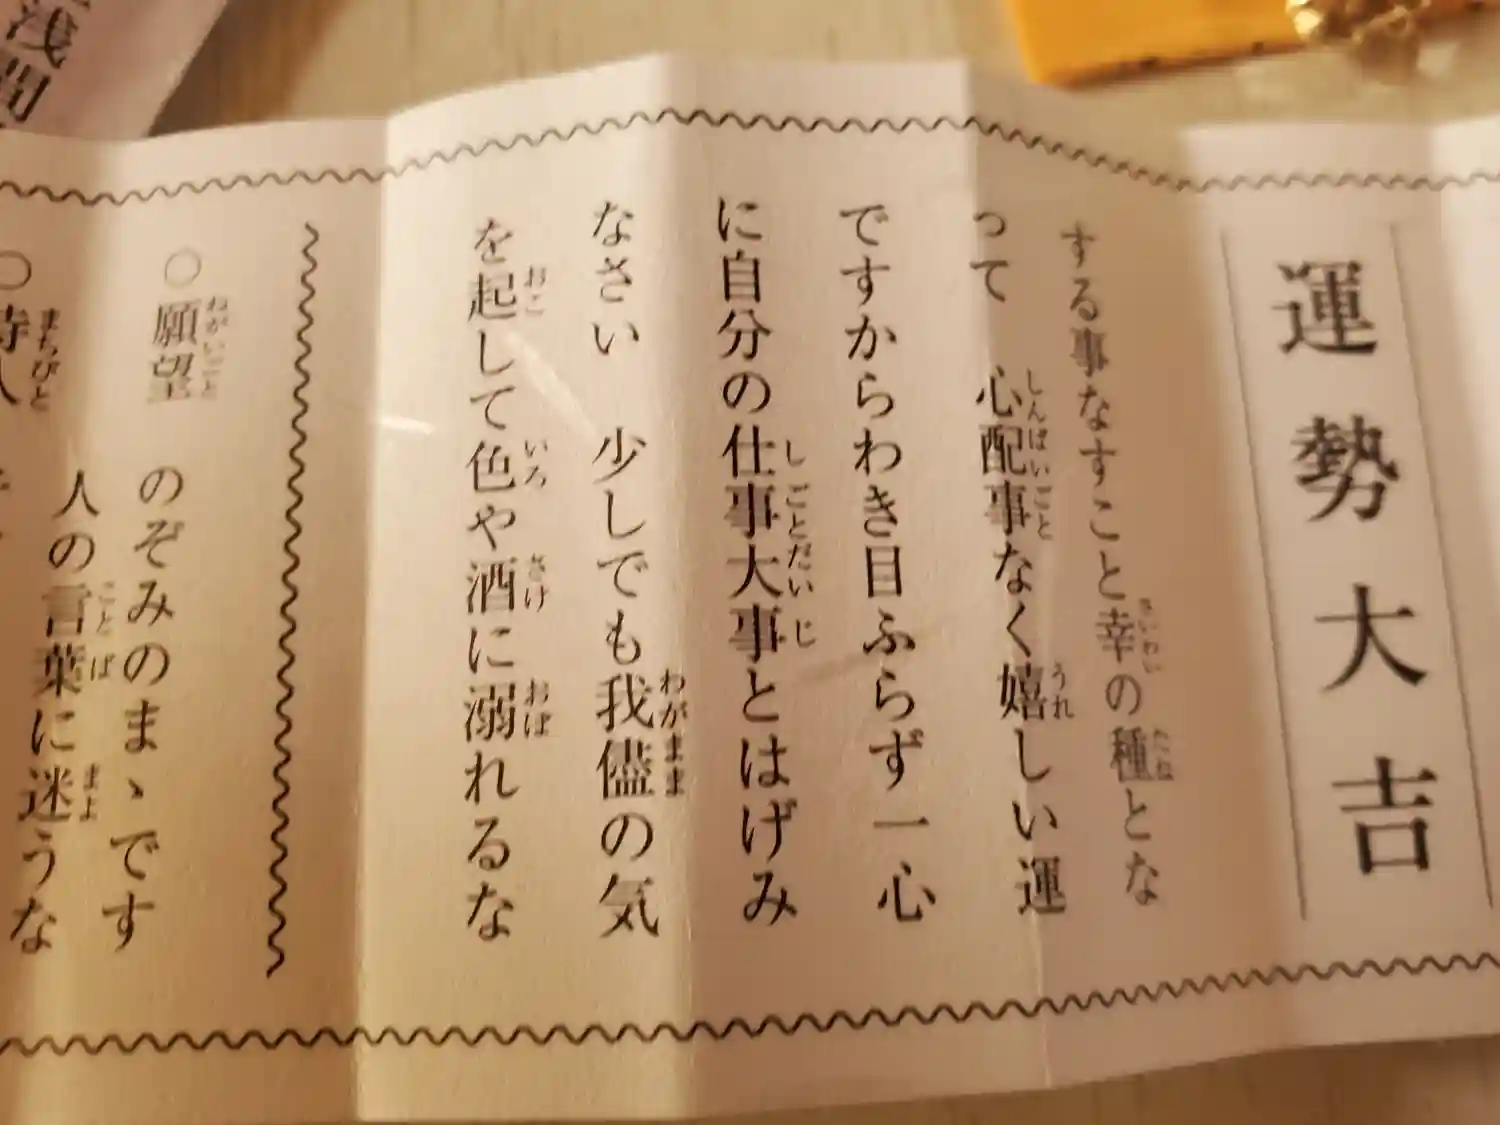 運勢大吉
する事なすこと幸の種とな
って 心配事なく嬉しい運
ですからわき目ふらず一心
に自分の仕事大事とはげみ
なさい 少しでも我儘の気
を起して色や酒に溺れるな
○願望 のぞみのまゝです
人の言葉に迷うな
○待人
浅間